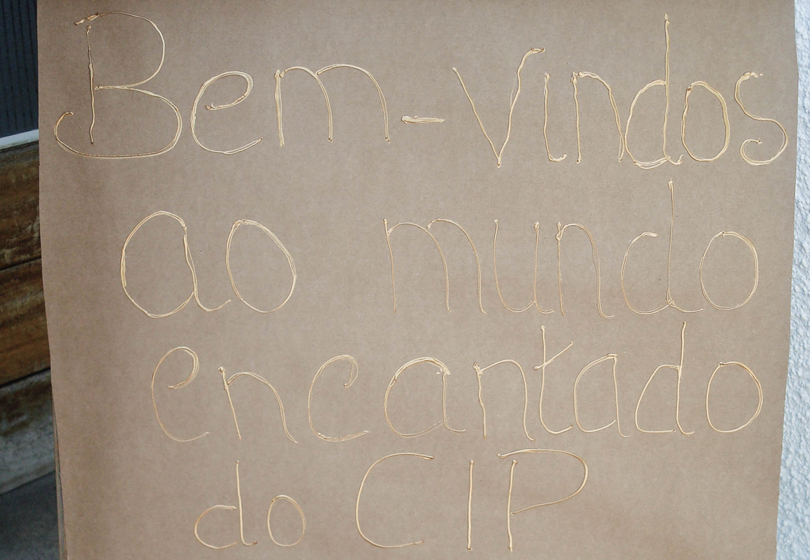 Bem-vindos
ao mundo
encantado
do CIP